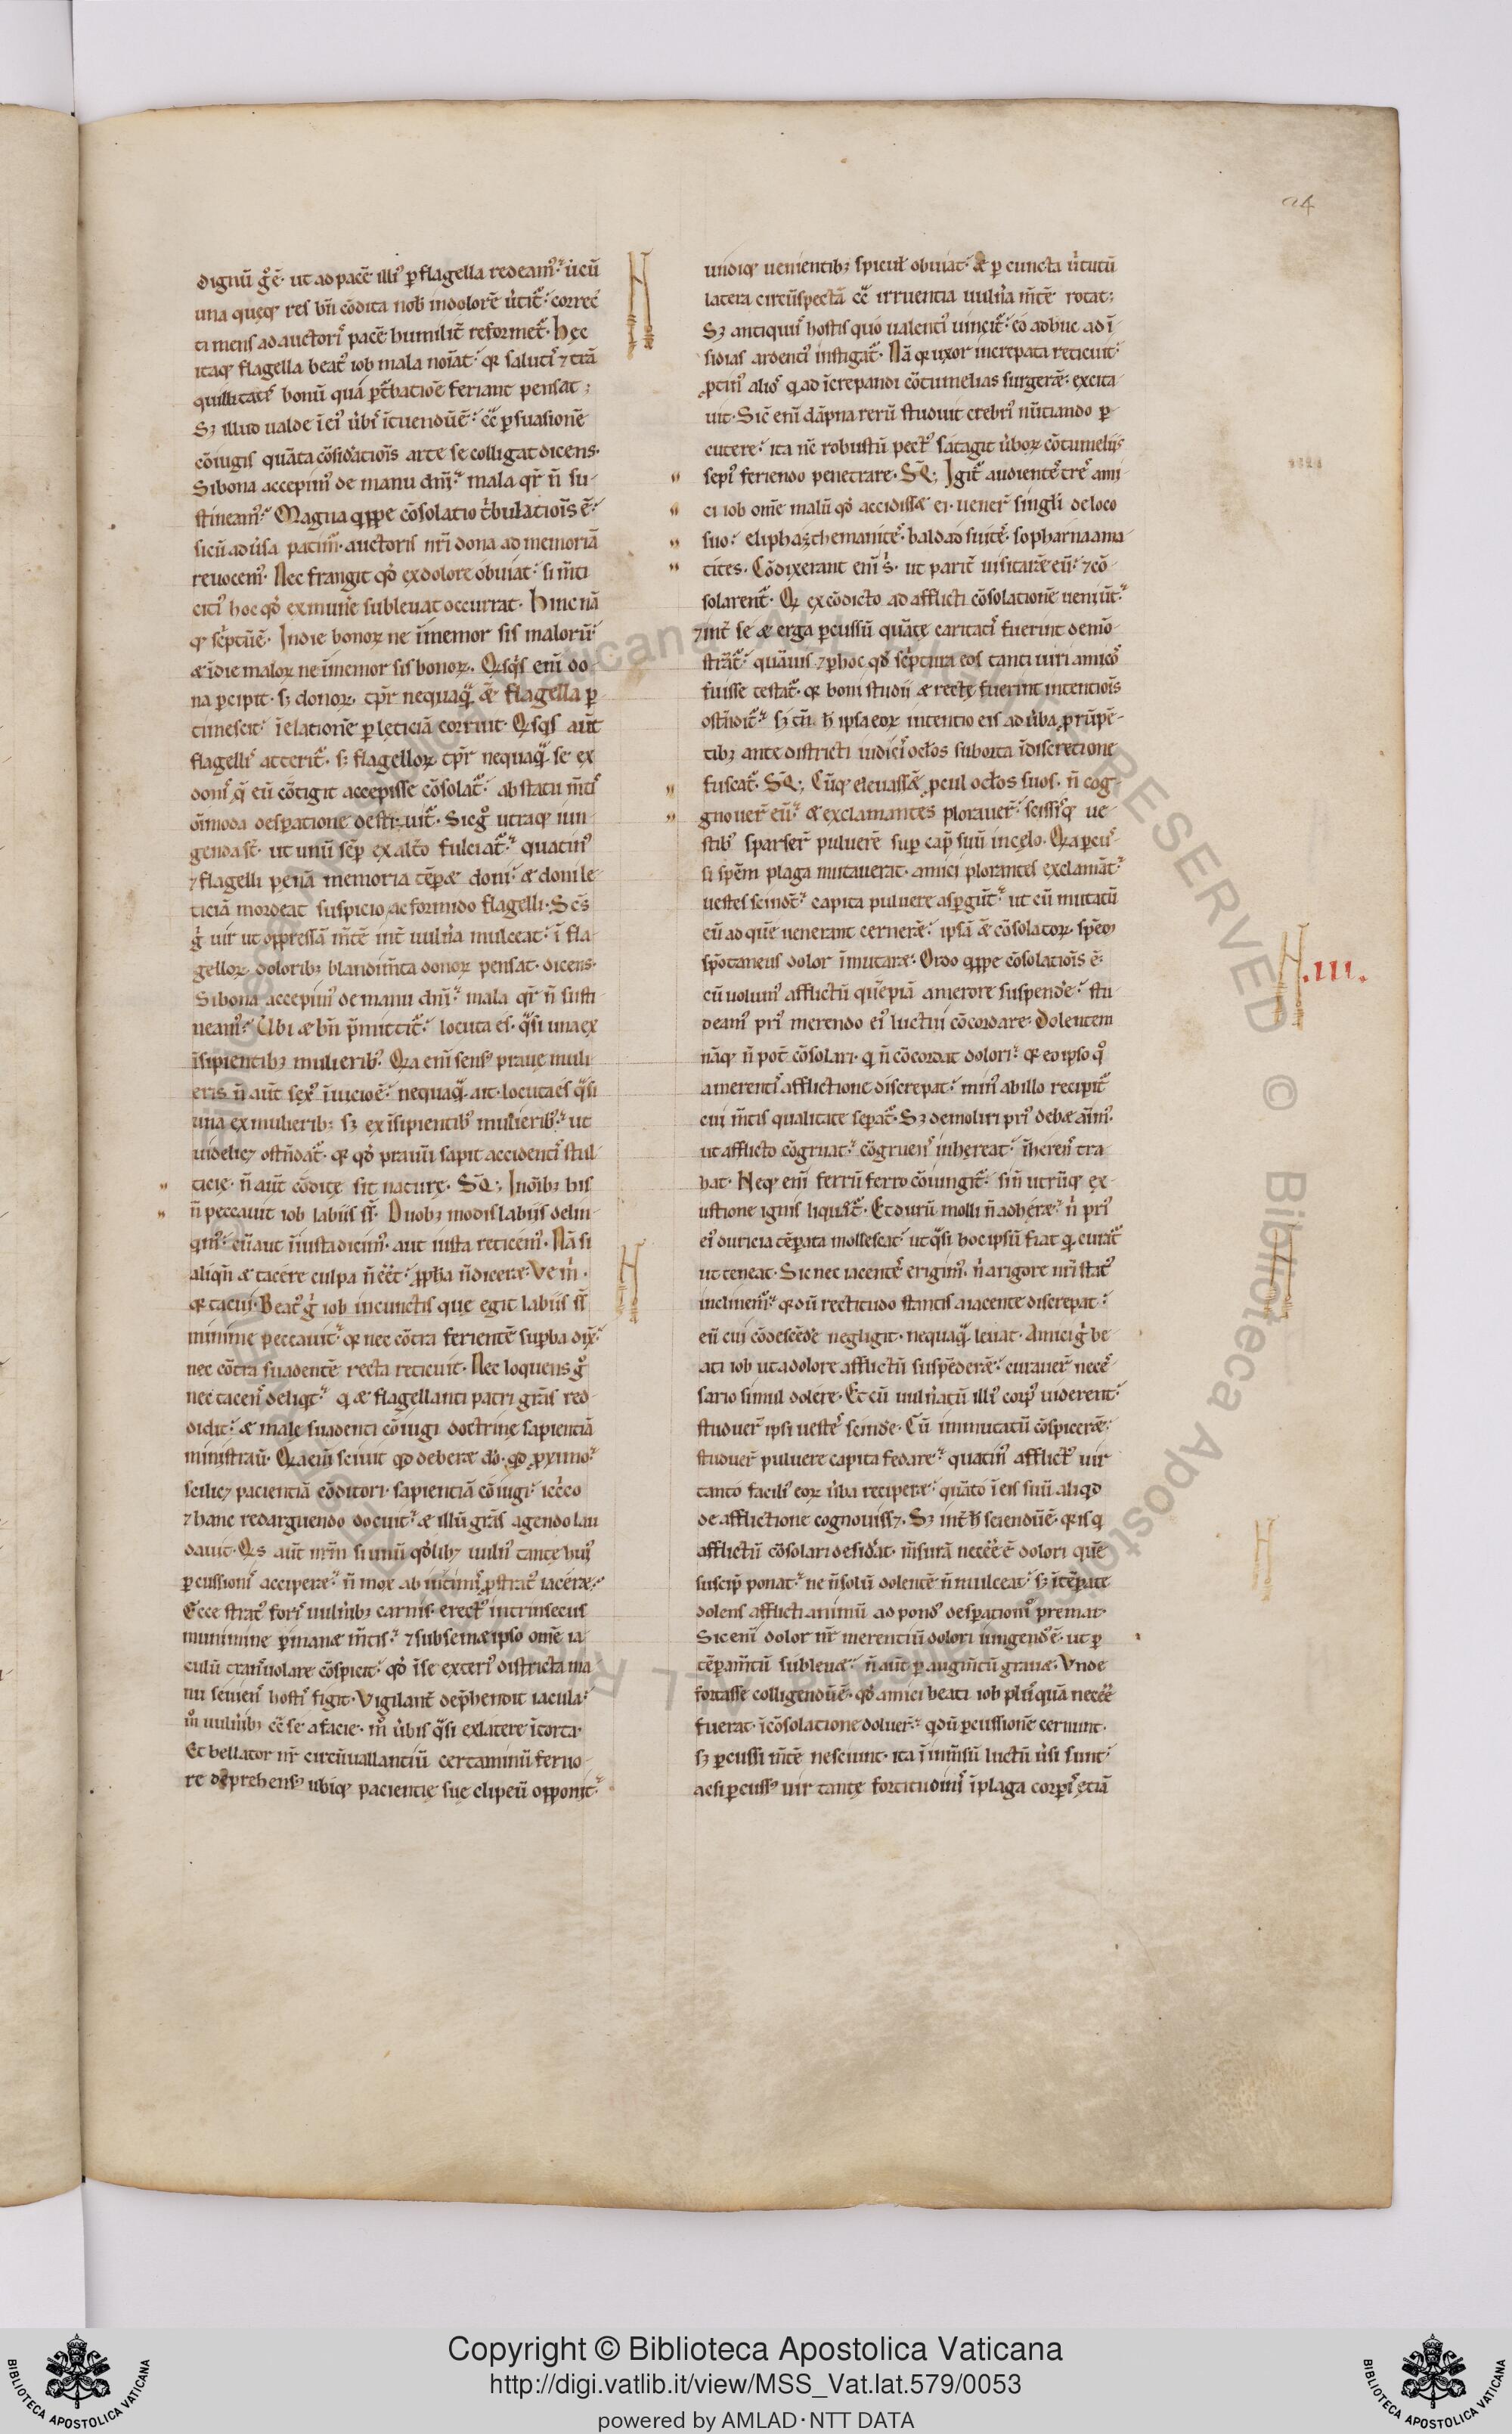 24
dignũ g̊ ẽ· ut ad pacẽ illiꝰ ꝑ flagella redeamꝰ· ut cũ
una quęq; res bñ cõdita nob̃ in dolorẽ u̾tit᷑· correc
ta mens ad auctorĩs pacẽ humilit̃ reformet᷑· Hęc
itaq; flagella beatꝰ iob mala noĩat᷑· q̃ salutĩ ⁊ trã
quillitatẽ bonũ qua ꝑt̾batiõe feriant pensat;
Sꝫ illud ualde ĩ eiꝰ u̾bĩs ĩtuendũ ẽ· cõ̃ ꝑsuasionẽ
cõiugis quãta cõsid̾atiõis arte se colligat dicens·
Si bona accepimꝰ de manu dñi· mala qr̃ ñ su-
stineamꝰ· Magna q̃ppe cõsolatio t̾bulatiõis ẽ·
si cũ adu̾sa patimur· auctoris nr̃i dona ad memoriã
reuocemꝰ· Nec frangit qd̾ ex dolore obuiat· si m̃ti
citiꝰ hoc qd̾ ex mun̾e subleuat occurrat· Hinc nã
q; sc̾ptũ ẽ· In die bonoꝝ ne ĩmemor sis malorũ·
æ ĩ die maloꝝ ne ĩmemor sis bonoꝝ· Qsq̾s eni do-
na ꝑcipit· sꝫ donoꝝ tp̃r nequaq̃ æ̃ flagella ꝑ
timescit· ĩ elationẽ ꝑ lęticiã corruit· Qsq̾s aũt
flagellĩs atterit᷑· sꝫ flagelloꝝ tp̃r nequaq̃ se ex
donĩs q̃ eũ cõtigit accepisse cõsolat᷑· ab statu m̃tĩs
oĩmoda desperatione destruit᷑· Sic g̊ utraq; iun-
genda st̃· ut unũ sẽp ex alt̃o fulciat᷑· quatinꝰ
⁊ flagelli penã memoria tẽpæ doni· æ doni lę-
ticiã mordeat suspicio ac formido flagelli· Sc̃s
g̾ uir ut oppressã m̃tẽ int̃ uuln̾a mulceat· ĩ fla-
gelloꝝ doloribꝫ blandim̃ta donoꝝ pensat· dicens·
Si bona accepimꝰ de manu dñi· mala qr̃ ñ susti
neamꝰ· Ubi æ bñ p̃mittit᷑· locuta es· q̃si una ex
ĩsipientibꝫ mulieribꝰ· Qa eni sensꝰ prauę muli
eris ñ aũt sexꝰ ĩ uicio ẽ· nequaq̃ ait· locuta es q̃si
una ex mulieribꝫ sꝫ ex ĩsipientibꝰ mulieribꝰ· ut
uidelicꝫ ostñdat᷑· q; qd̾ prauũ sapit accidentĩs stul-
ticię· ñ aũt cõditę sit naturę· SQ; In oĩbꝫ his
ñ peccauit iob labiis ss̃· Duobꝫ modis labiis delin-
quimꝰ· cũ aut ĩiusta dicimꝰ· aut iusta reticemꝰ· Nã si
aliqñ æ tacere culpa ñ ẽẽt· ꝓph̃a ñ diceræ· Ve m̾·
q; tacui· Beatꝰ g̾ iob in cunctis que egit labiis ss̃
minime peccauit· q; nec cõtra ferientẽ suꝑba dix̃·
nec cõtra suadentẽ recta reticuit· Nec loquens g̊
nec tacens deliq̃t· q̾ æ flagellanti patri grãs red-
didit· æ male suadenti cõiugi doctrinę sapientiã
ministrau̾· Qa eni sciuit qd deberæ dõ· qd ꝓximo·
scilicꝫ pacientiã cõditori· sapientiã cõiugi· icc̾co
⁊ hanc redarguendo docuit· æ illũ grãs agendo lau
dauit· Qs aũt nr̃m si unũ qd̾libꝫ uulnꝰ tantę huiꝰ
ꝑcussionĩs acciperæ· ñ mox ab intimĩs ꝓstratꝰ iaceræ·
Ecce stratꝰ forĩs uuln̾ibꝫ carnis· erectꝰ intrinsecus
munimine ꝑmanæ m̃tis· ⁊ sub semæ ipso omẽ ia
culũ tranſuolare cõspicit· qd̾ ĩ se exteriꝰ districta ma
nu seuiens hostis figit· Vigilant̃ dep̃hendit iacula·
m̊ uuln̾ibꝫ cõ̃ se a facie· m̊ u̾bis q̃si ex latere ĩtorta·
Et bellator nr̃ circũuallantiũ certaminũ feruo-
re deprehensꝰ ubiq; pacientię suę clipeũ opponit·
undiq; uenientibꝫ spicul̃ obuiat· æ ꝑ cuncta u̾tutũ
latera circũspectã cõ̃ irruentia uuln̾a m̃tẽ rotat;
Sꝫ antiquꝰ hostis quo ualentiꝰ uincit᷑· eo adhuc ad ĩ-
sidias ardentiꝰ instigat᷑· Nã q; uxor increpata reticuit·
ꝓtinꝰ aliõs q̾ ad ĩcrepandi cõtumelias surgeræ̃· excita
uit· Sic̃ eni dãpna rerũ studuit crebriꝰ nũtiando ꝑ-
cutere· ita nc̃ robustũ pectꝰ satagit u̾boꝝ cõtumeliis
sepiꝰ feriendo penetrare· SQ; Igit᷑ audientẽs trẽs ami-
ci iob omẽ malũ qd̾ accidissæ ei· uener̃ singli de loco
suo· eliphaz themanitẽs· baldad suitẽs· sophar naama
tites· Cõdixerant eni s̾· ut parit̃ uisitaræ̃ eũ· ⁊ cõ-
solarent᷑· Q; ex cõdicto ad afflicti cõsolationẽ ueniũt·
⁊ int̃ se æ erga ꝑcussũ quãtę caritatĩs fuerint demõ-
strãt᷑· quãuis ⁊ ꝑ hoc qd̾ sc̾ptura eos tanti uiri amicõs
fuisse testat᷑· q; boni studii æ rectę fuerint intentiõis
ostñdit᷑· sꝫ tñ h̃ ipsa eoꝝ intentio eis ad u̾ba ꝓrũpẽ-
tibꝫ ante districti iudicĩs ocl̃os suborta ĩdiscretione
fuscat᷑· SQ; Cũq; eleuassæ̃ ꝓcul ocl̃os suos· ñ cog-
gnouer̃ eũ· æ exclamantes plorauer̃· scissĩsq; ue-
stibꝰ sparser̃ puluerẽ suꝑ cap̃ suũ in cęlo· Qa ꝑcuĩ-
si spẽm plaga mutauerat· amici plorantes exclamãt·
uestes scindũt· capita puluere aspgũt· ut eũ mutatũ
eũ ad quẽ uenerant cerneræ̃· ipsã æ̃ cõsolatoꝝ spẽꝫ
spõtaneus dolor ĩmutaræ· Ordo q̃ppe cõsolatiõis ẽ·
cũ uolumꝰ afflictũ quẽpiã a merore suspend̾e· stu
deamꝰ priꝰ merendo eiꝰ luctui cõcordare· Dolentem
nãq; ñ pot̃ cõsolari· q̾ ñ cõcordat dolori· q; eo ipso q̊
a merentĩs afflictione discrepat· minꝰ ab illo recipit᷑
cui m̃tis qualitate seꝑat᷑· Sꝫ demoliri priꝰ debæ aĩmꝰ·
ut afflicto cõgruat· cõgruens inhęreat· ĩherens tra
hat· Neq; eni ferrũ ferro cõiungit᷑· si ñ utrũq; ex-
ustione ignis liquãt᷑· Et durũ molli ñ adhęræ· ñ priꝰ
eiꝰ duricia tẽpata mollescat· ut q̃si hoc ipsũ fiat q̾ curat᷑
ut teneat· Sic nec iacentẽs erigimꝰ· ñ a rigore nr̃i statꝰ
inclinemꝰ· q; dũ rectitudo stantis a iacente discrepat·
eũ cui cõdescẽd̾e negligit· nequaq̃ leuat· Amici g̾ be
ati iob ut a dolore afflictũ suspẽderæ̃· curauer̃ necẽs
sario simul dolere· Et cũ uuln̾atũ illiꝰ corpꝰ uiderent·
studuer̃ ipsi uestẽs scind̾e· Cũ immutatũ cõspiceræ̃·
studuer̃ puluere capita fedare· quatinꝰ afflictꝰ uir
tanto faciliꝰ eoꝝ u̾ba reciperæ· quãto ĩ eis suũ aliqd
de afflictione cognouissꝫ· Sꝫ int̃ h̃ sciendũ ẽ· q; is q̾
afflictũ cõsolari desid̾at· m̃surã necẽẽ ẽ dolori quẽ
suscip̃ ponat· ne ñ solũ dolentẽ ñ mulceat· sꝫ ĩtẽpate
dolens afflicti animũ ad pondꝰ despationĩs premat·
Sic eni dolor nr̃ merentiũ dolori iungendꝰ ẽ· ut ꝑ
tẽpam̃tũ subleuæ· ñ aũt ꝑ augm̃tũ grauæ· Vnde
fortasse colligendũ ẽ· qd̾ amici beati iob plꝰ quã necẽẽ
fuerat· ĩ cõsolatione doluer̃· q̾ dũ ꝑcussionẽ cernunt·
sꝫ ꝑcussi m̃tẽ nesciunt· ita ĩ im̃sũ luctũ u̾si sunt·
ac si ꝑcussꝰ uir tantę fortitudinĩs ĩ plaga corpĩs etiã
.III.
Copyright © Biblioteca Apostolica Vaticana
http://digi.vatlib.it/view/MSS_Vat.lat.579/0053
powered by AMLAD·NTT DATA
BIBLIOTECA APOSTOLICA VATICANA
BIBLIOTECA APOSTOLICA VATICANA